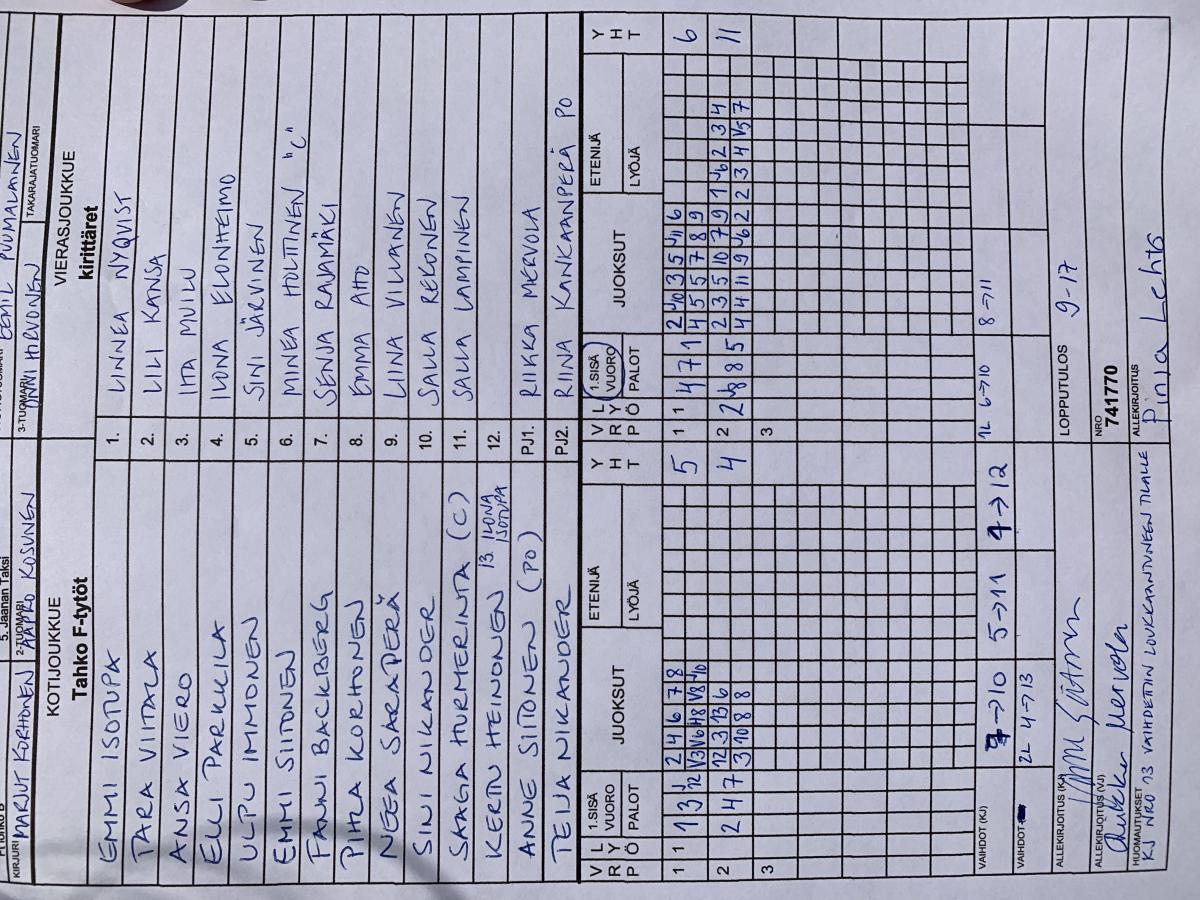 5. Jaanan Taksi
KIRJURI MARJUT KORHONEN 2-TUOMARI AAPRO KOSUNEN 3-TUOMARI HIRVONEN EEMIL PUUMALAINEN TAKARAJATUOMARI
KOTIJOUKKUE VIERASJOUKKUE
Tahko F-tytöt kirittäret
EMMI ISOTUPA 1. LINNEA NYQVIST
TARA VIITALA 2. LILI KANSA
ANSA VIERO 3. IITA MUILU
ELLI PARKKILA 4. ILONA ELONHEIMO
ULPU IMMONEN 5. SINI JÄRVINEN
EMMI SIITONEN 6. MINEA HOLTTINEN "C"
FANNI BACKBERG 7. SENJA RAJAMÄKI
PIHLA KORHONEN 8. EMMA AHO
NEEA SARAPERÄ 9. LIINA VILLANEN
SINI NIKANDER 10. SALLA REKONEN
SAAGA HURMERINTA (C) 11. SALLA LAMPINEN
KERTTU HEINONEN 13 ILONA ISOTUPA 12.
ANNE SIITONEN (PO) PJ1. RIIKKA MERVOLA
TEIJA NIKANDER PJ2. RIINA KANKAANPERÄ PO
V R P L Y Ö 1.SISÄ VUORO PALOT JUOKSUT ETENIJÄ LYÖJÄ Y H T V R P L Y Ö 1.SISÄ VUORO PALOT JUOKSUT ETENIJÄ LYÖJÄ Y H T
1 1 1 3 2 4 6 7 8 5 1 1 4 7 1 2 3 5 6 6
4 5 5 7 8 9
2 2 4 7 12 3 13 6 4 2 2 8 8 5 2 3 5 10 7 9 1 2 3 4 11
3 10 8 8 4 4 11 9 2 2 3 4 7
3 3
VAIHDOT (KJ) →10 5→11 9→12 1L 6→10 8→11
VAIHDOT 2L 4→13
ALLEKIRJOITUS (KJ) LOPPUTULOS 9-17
ALLEKIRJOITUS (VJ) Mervola NRO 741770
HUOMAUTUKSET ALLEKIRJOITUS
KJ NRO 13 VAIHDETTIIN LOUKKAANTUNEEN TILALLE Pinja Lehto